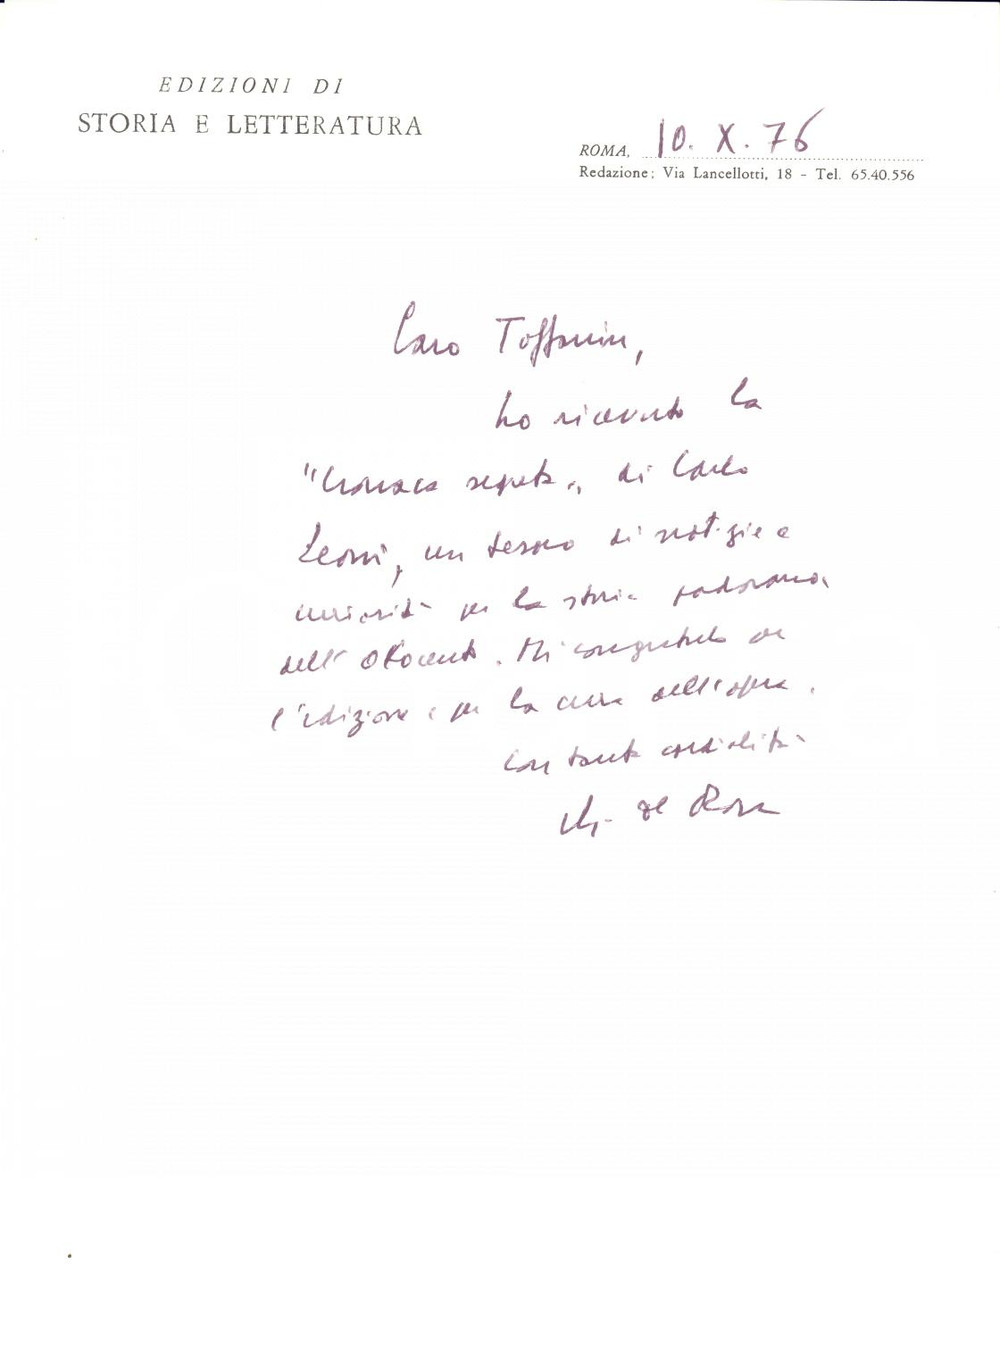 EDIZIONI DI
STORIA E LETTERATURA
ROMA, 10. X. 76
Redazione: Via Lancellotti, 18 - Tel. 65.40.556
Caro Toffanin,
ho ricevuto la
"Cronaca segreta", di Carlo
Leoni, un tesoro di notizie e
curiosità per la storia padovana
dell'Ottocento. Mi congratulo per
l'edizione e per la cura dell'opera.
Con tanta cordialità
de Rosa